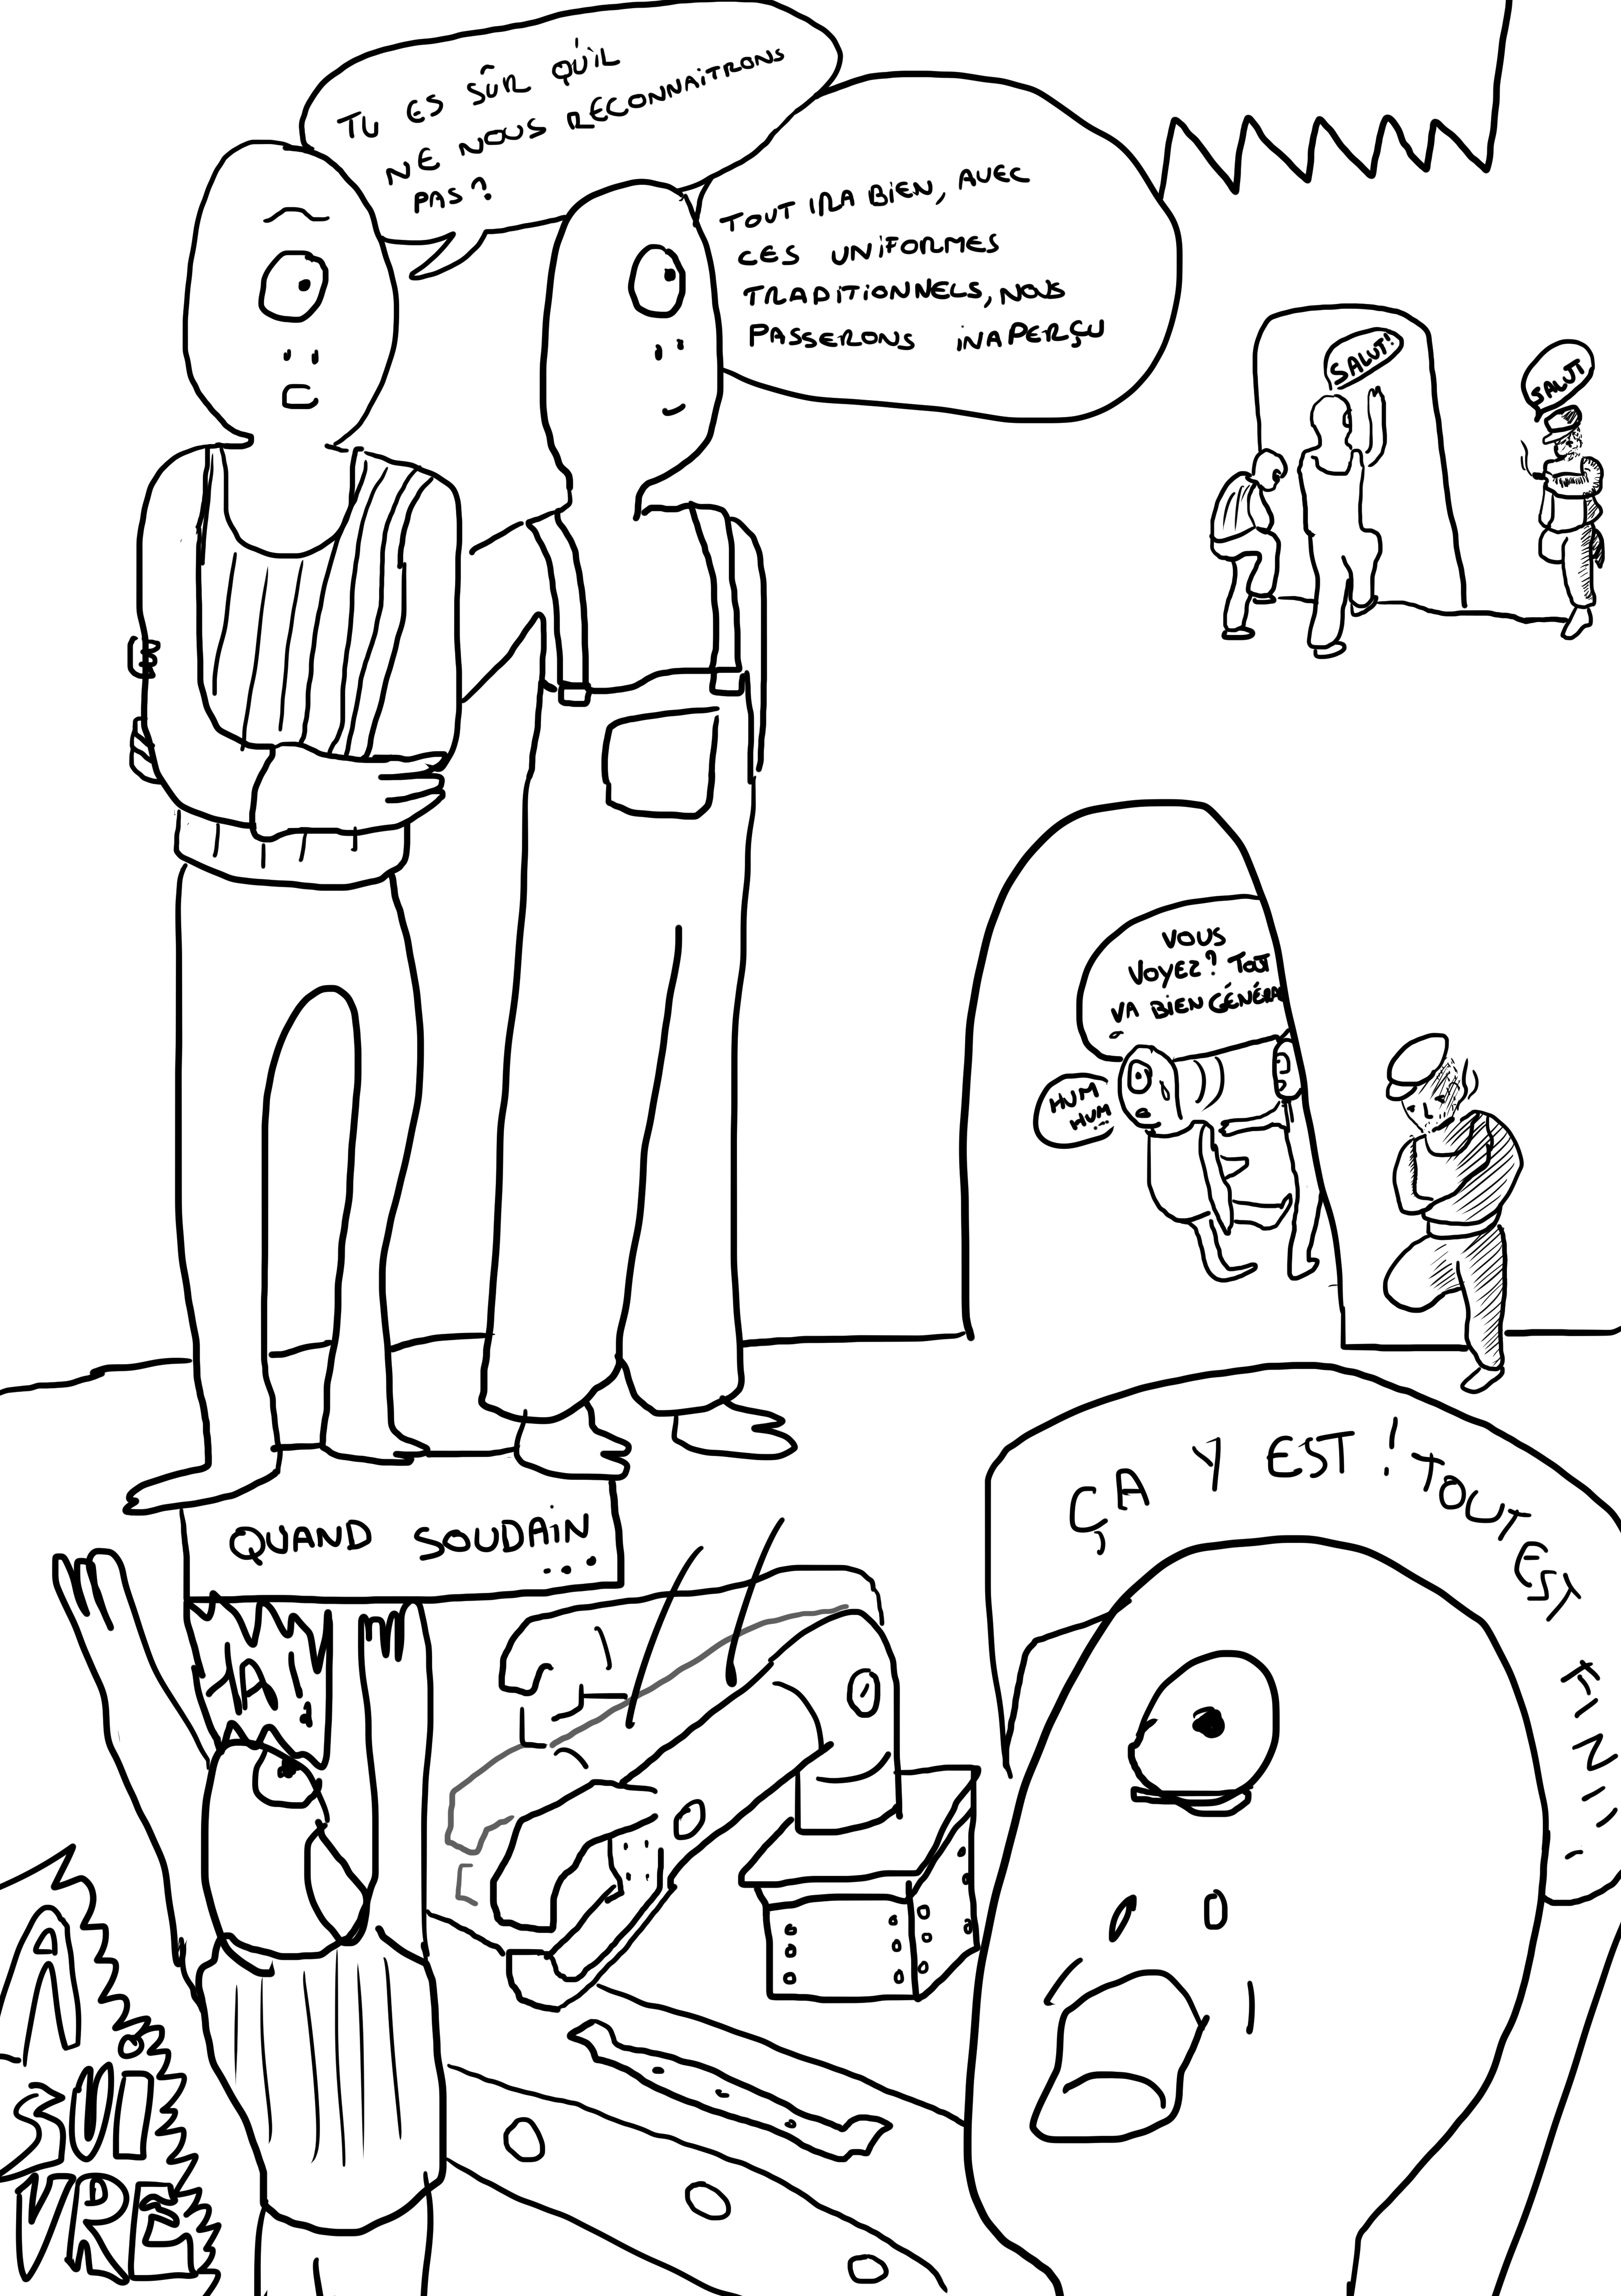 TU ES SÛR QU'IL
NE NOUS RECONNAÎTRONS
PAS?
TOUT IRA BIEN, AVEC
CES UNIFORMES
TRADITIONNELS, NOUS
PASSERONS INAPERÇU
SALUT!
SALUT
VOUS
VOYEZ? TOUT
VA BIEN GÉNÉRA
HUM
HUM...
ÇA Y EST! TOUT EST FINI!
QUAND SOUDAIN
...
À
SUI
VRE